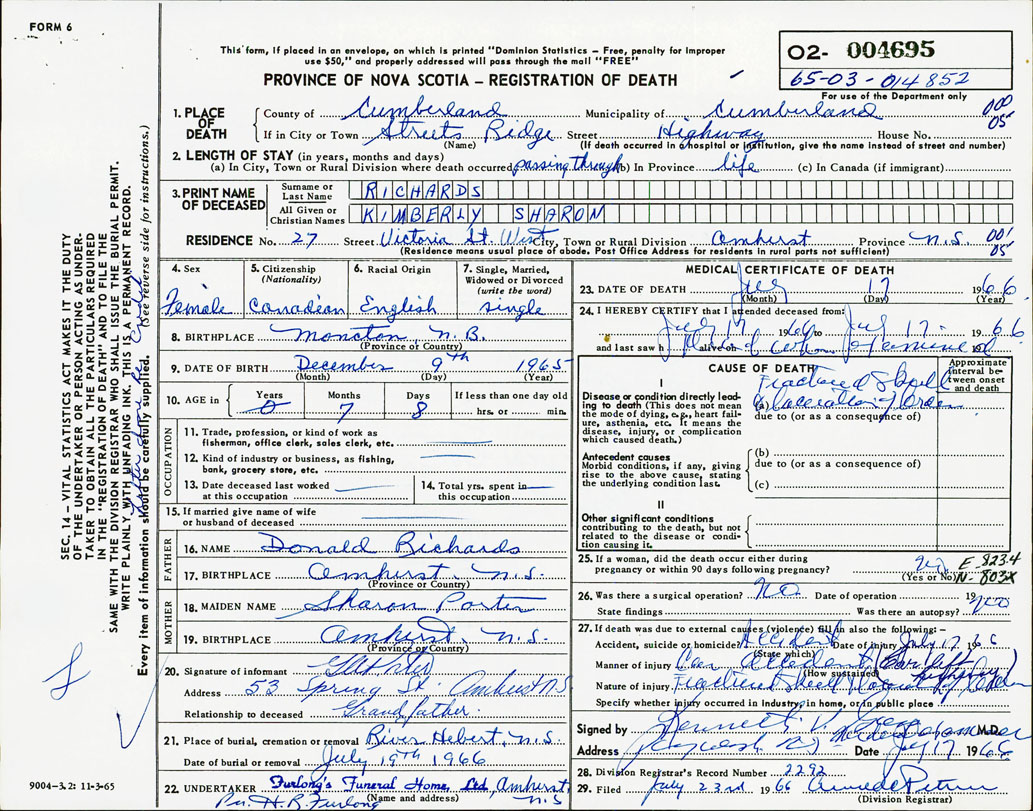 FORM 6
This form, if placed in an envelope, on which is printed "Dominion Statistics – Free, penalty for improper
use $50," and properly addressed will pass through the mail "FREE"
PROVINCE OF NOVA SCOTIA – REGISTRATION OF DEATH
02- 004695
65-03-014852
For use of the Department only
1. PLACE OF DEATH
County of Cumberland Municipality of Cumberland 000
If in City or Town Streets Ridge Street Highway House No. 05
(Name) (If death occurred in a hospital or institution, give the name instead of street and number)
2. LENGTH OF STAY (in years, months and days)
(a) In City, Town or Rural Division where death occurred passing through (b) In Province life (c) In Canada (if immigrant)
3. PRINT NAME OF DECEASED
Surname or Last Name RICHARDS
All Given or Christian Names KIMBERLY SHARON
RESIDENCE No. 27 Street Victoria St. West City, Town or Rural Division Amherst Province N.S. 001 05
(Residence means usual place of abode. Post Office Address for residents in rural parts not sufficient)
4. Sex Female
5. Citizenship (Nationality) Canadian
6. Racial Origin English
7. Single, Married, Widowed or Divorced (write the word) single
8. BIRTHPLACE Moncton N.B.
(Province or Country)
9. DATE OF BIRTH December 9th 1965
(Month) (Day) (Year)
10. AGE in Years 0 Months 7 Days 8 If less than one day old
hrs. or min.
OCCUPATION
11. Trade, profession or kind of work as fisherman, office clerk, sales clerk, etc.
12. Kind of industry or business, as fishing, bank, grocery store, etc.
13. Date deceased last worked at this occupation
14. Total yrs. spent in this occupation
15. If married give name of wife or husband of deceased
FATHER
16. NAME Donald Richards
17. BIRTHPLACE Amherst, N.S.
(Province or Country)
MOTHER
18. MAIDEN NAME Sharon Porter
19. BIRTHPLACE Amherst, N.S.
(Province or Country)
20. Signature of informant
Address 53 Spring St. Amherst NS
Relationship to deceased Grandfather.
21. Place of burial, cremation or removal River Hebert, N.S.
Date of burial or removal July 19th 1966
22. UNDERTAKER Furlong's Funeral Home, Ltd, Amherst, N.S
(Name and address)
Per. H.R. Furlong
MEDICAL CERTIFICATE OF DEATH
23. DATE OF DEATH July 17 1966
(Month) (Day) (Year)
24. I HEREBY CERTIFY that I attended deceased from:
July 17 1966 July 17 - 66
and last saw h alive on 19
CAUSE OF DEATH
Approximate interval between onset and death
I
Disease or condition directly leading to death (This does not mean the mode of dying, e.g., heart failure, asthenia, etc. It means the disease, injury, or complication which caused death.)
Fractured Skull
(a) Laceration of Brain
due to (or as a consequence of)
Antecedent causes
Morbid conditions, if any, giving rise to the above cause, stating the underlying condition last.
(b)
due to (or as a consequence of)
(c)
II
Other significant conditions
contributing to the death, but not related to the disease or condition causing it.
25. If a woman, did the death occur either during pregnancy or within 90 days following pregnancy? No
(Yes or No)
E-8234
N-803X
26. Was there a surgical operation? No Date of operation 19
State findings Was there an autopsy? No
27. If death was due to external causes (violence) fill in also the following:-
Accident, suicide or homicide? Accident Date of injury July 17 66
(State which)
Manner of injury Car Accident (Car left highway)
(How sustained)
Nature of injury Fractured Skull Laceration of Brain
Specify whether injury occurred in industry, in home, or in public place
Signed by Kenneth M.D.
Address Date July 17 1966
28. Division Registrar's Record Number 2292
29. Filed July 23rd 1966
(Division Registrar)
SEC. 14 – VITAL STATISTICS ACT MAKES IT THE DUTY
OF THE UNDERTAKER OR PERSON ACTING AS UNDER-
TAKER TO OBTAIN ALL THE PARTICULARS REQUIRED
IN THE "REGISTRATION OF DEATH" AND TO FILE THE
SAME WITH THE DIVISION REGISTRAR WHO SHALL ISSUE THE BURIAL PERMIT.
WRITE PLAINLY WITH UNFADING INK. THIS IS A PERMANENT RECORD.
Every item of information should be carefully supplied. (See reverse side for instructions.)
9004–3.2: 11-3-65